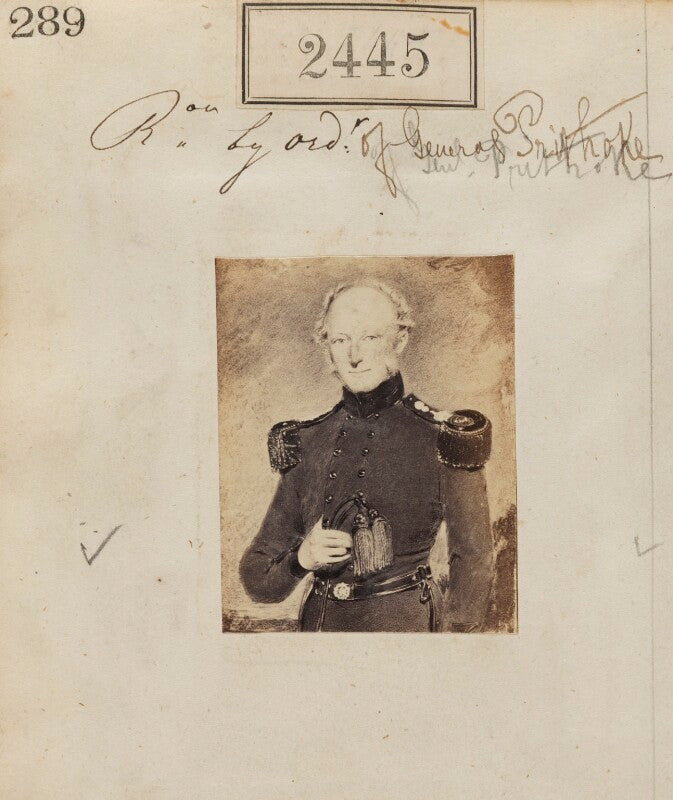 289
2445
Ron by ordr. of General Prithoke
Genl. Prithoke